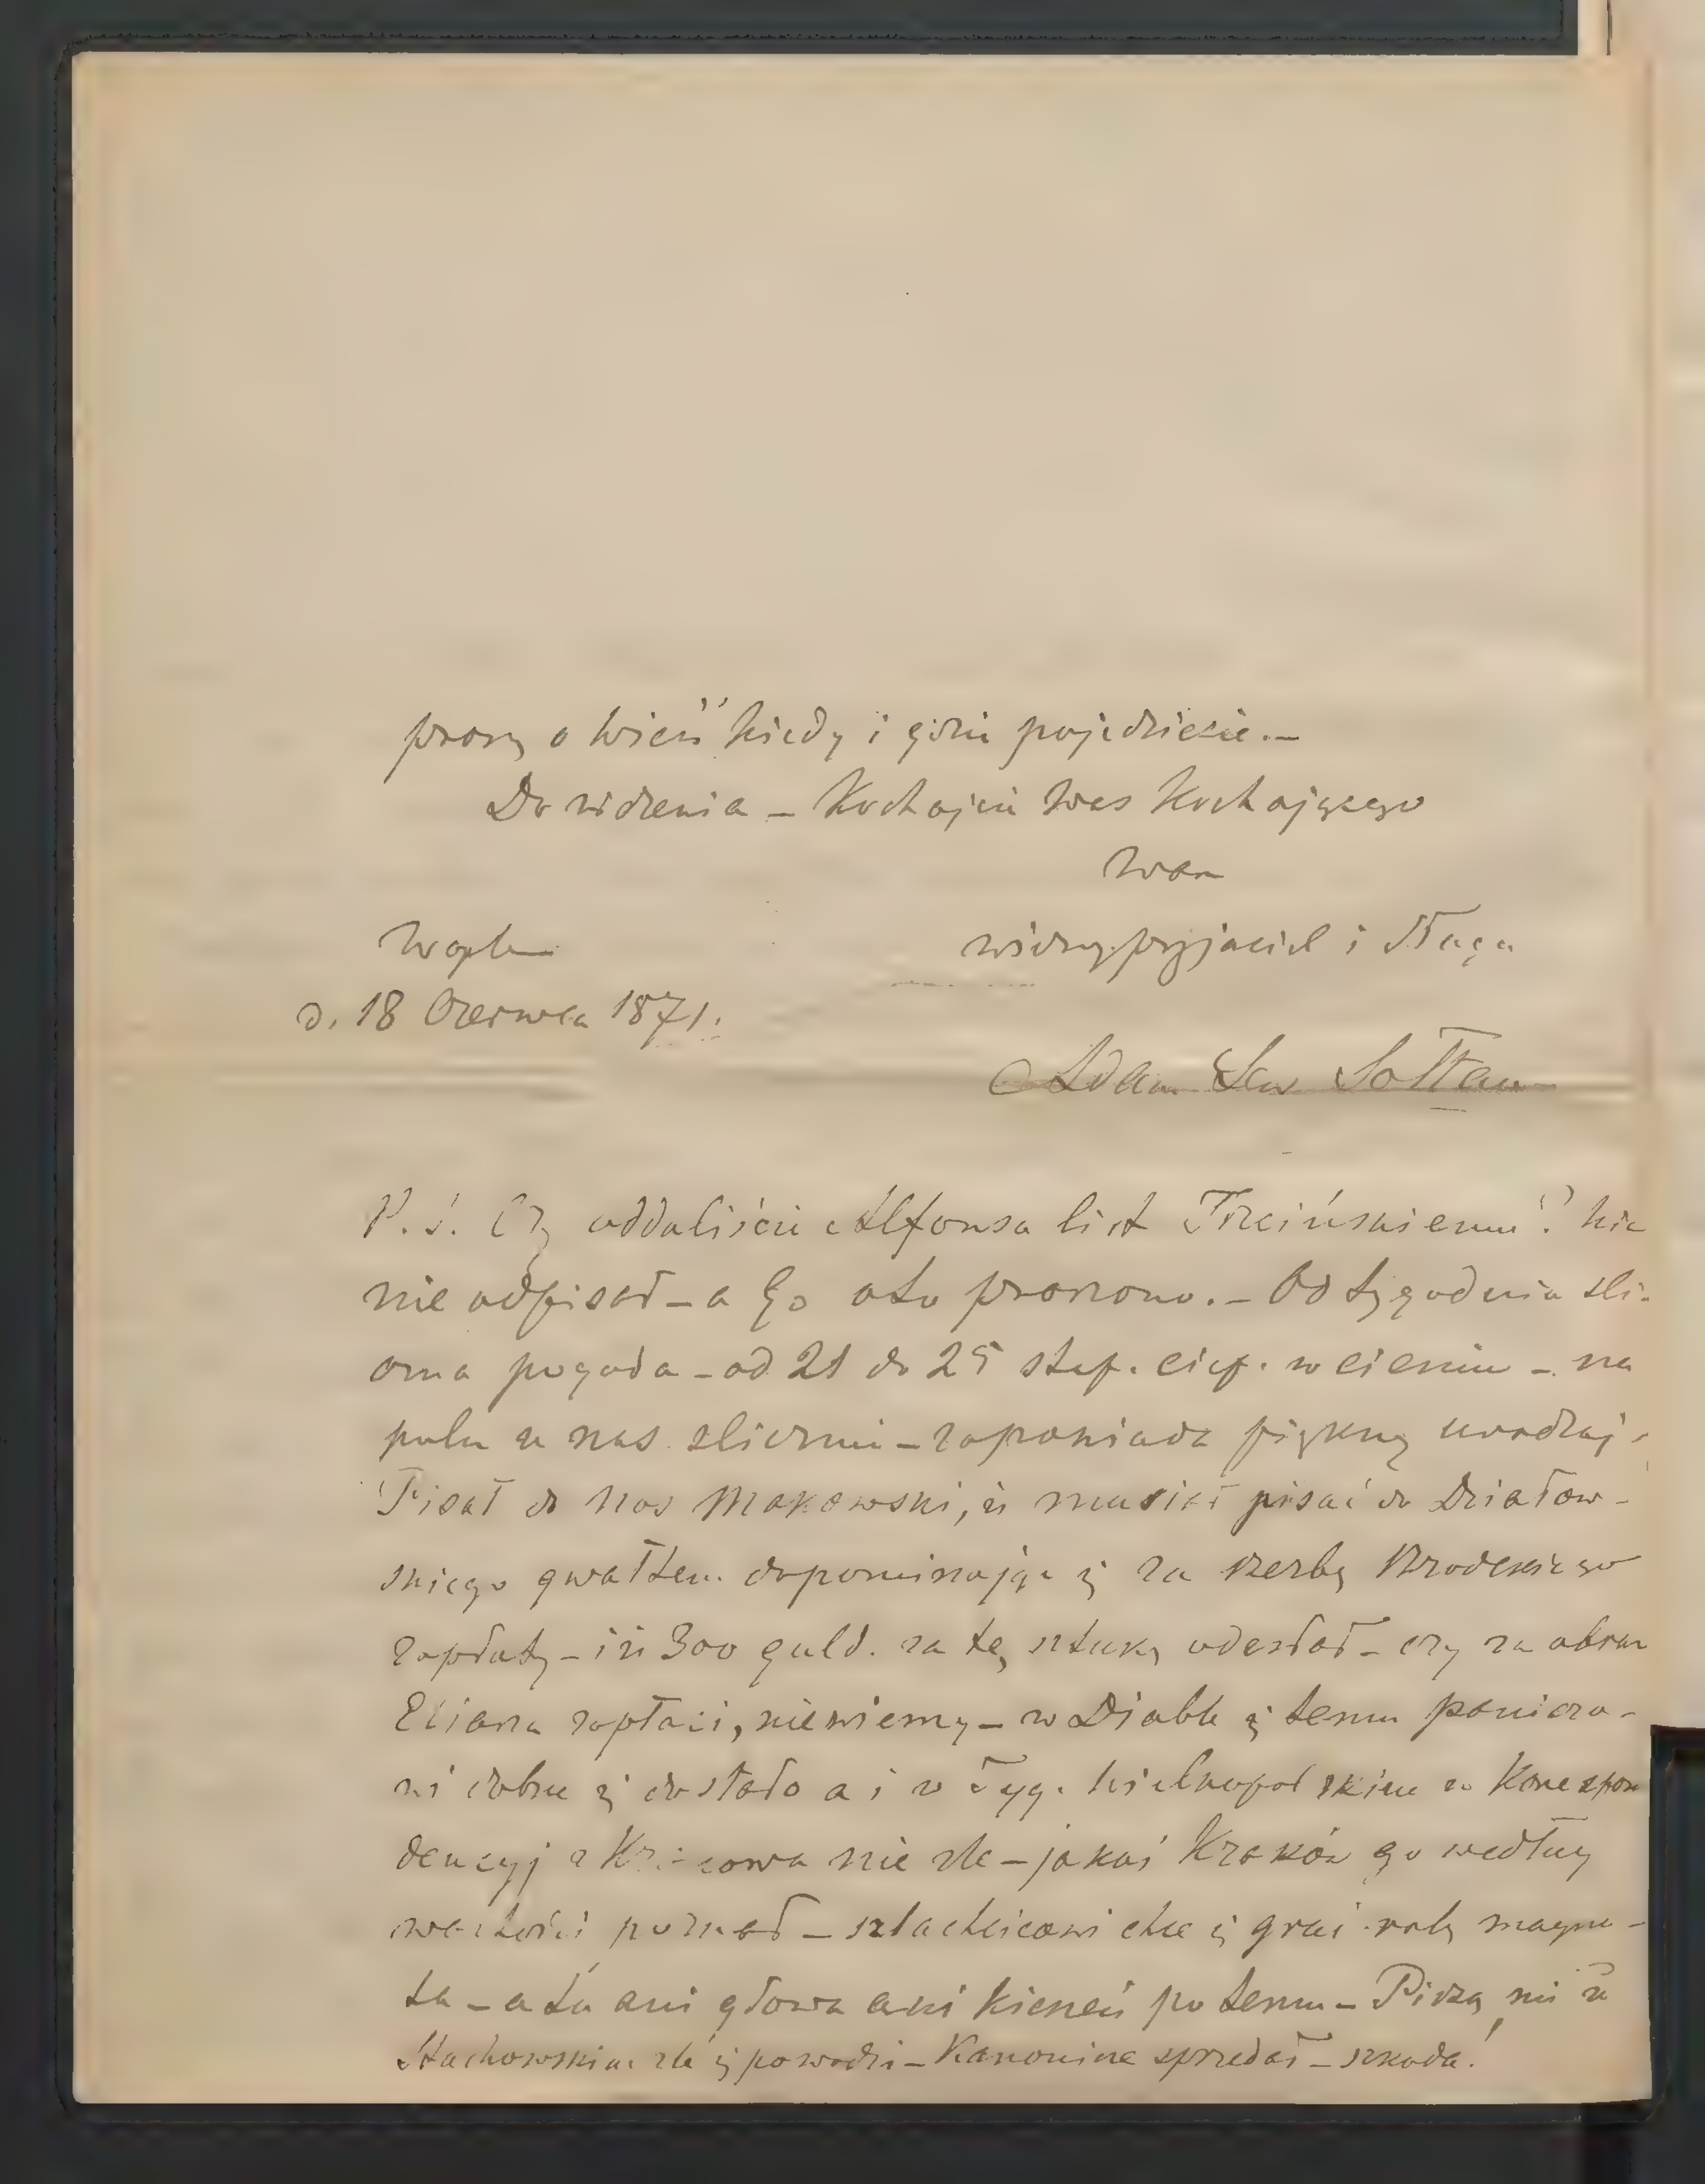 proszę o wieść kiedy i gdzie pojedziecie. –
Do widzenia – Kochajcie Was Kochającego
Wam
wierny przyjaciel i sługa
d. 18 Czerwca 1871.
Adam Lew Sołtan
P. S. Czy oddaliście Alfonsa list Trzcińskiemu?
nie odpisał – a Go oto proszono. – Od tygodnia śli-
czna pogoda – od 21 do 25 stop. ciep. w cieniu – na
polu u nas ślicznie – zapowiada piękny urodzaj.
Pisał do nas Makowski, iż musiał pisać do Działow-
skiego gwałtem dopominając się za rzeźbę Brodzkiego
zapłaty – iż 300 guld. za tę sztukę odesłał – czy za obraz
zapłaci, niewiemy – w Djable się temu
dobrze się dostało a i w Tyg. Wielkopolskim w Korespon
dencyj z Krakowa nie źle – jakoś Kraków go według
wartości poznał – szlachcicowi chce się grać rolę magna-
ta – a tu ani głowa ani kieszeń po temu – Piszą mi że
Stachowskim źle się powodzi – Kanonicze sprzedał – szkoda!